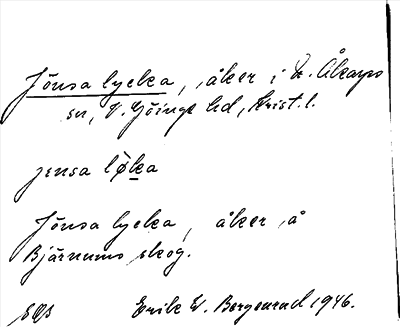 Jönsa lycka, åker i N. Åkarps
sn, V. Göinge hd, Krist. l.
jensa løka
Jönsa lycka, åker å
Bjärnums skog.
Erik W. Bergenrud 1946.